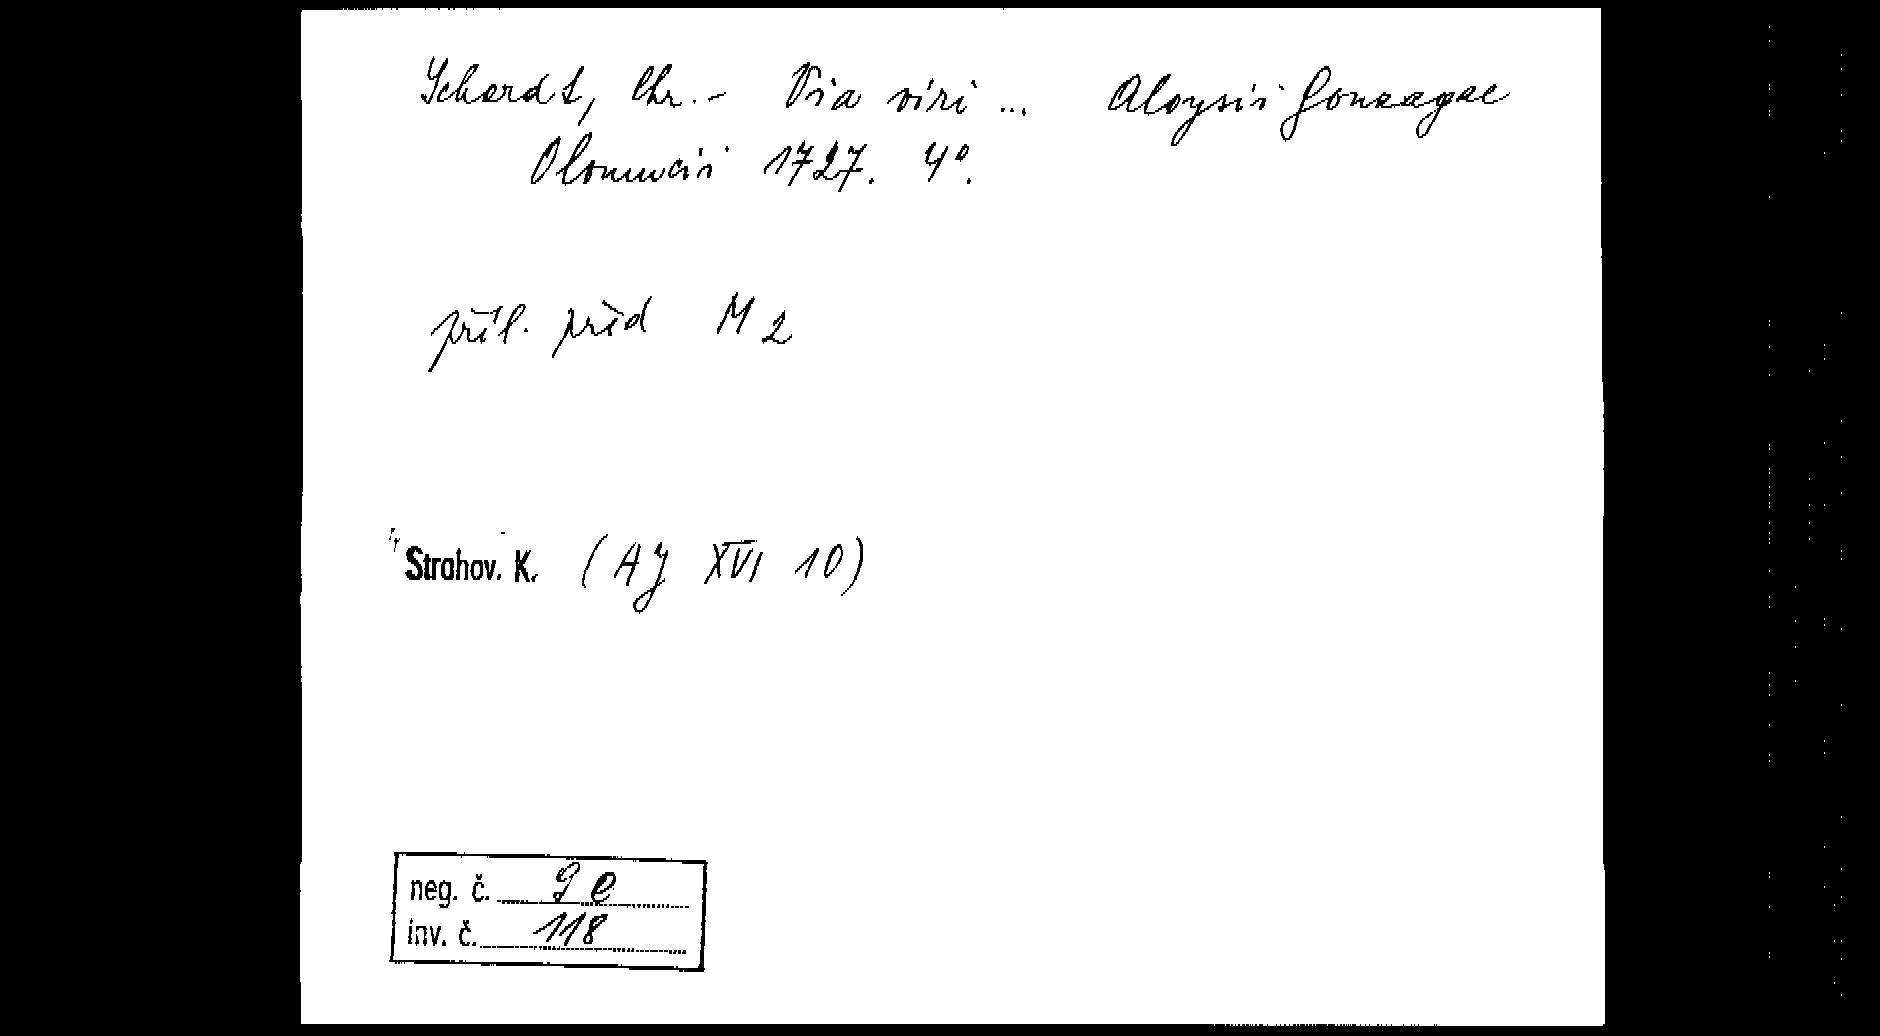 Schardt, Chr. - Via viri ... Aloysii Gonzagae
Olomucii 1727. 4°.
příl. před M 2
Strahov. K. (AJ XVI 10)
neg. č. 9 e
inv. č. 118